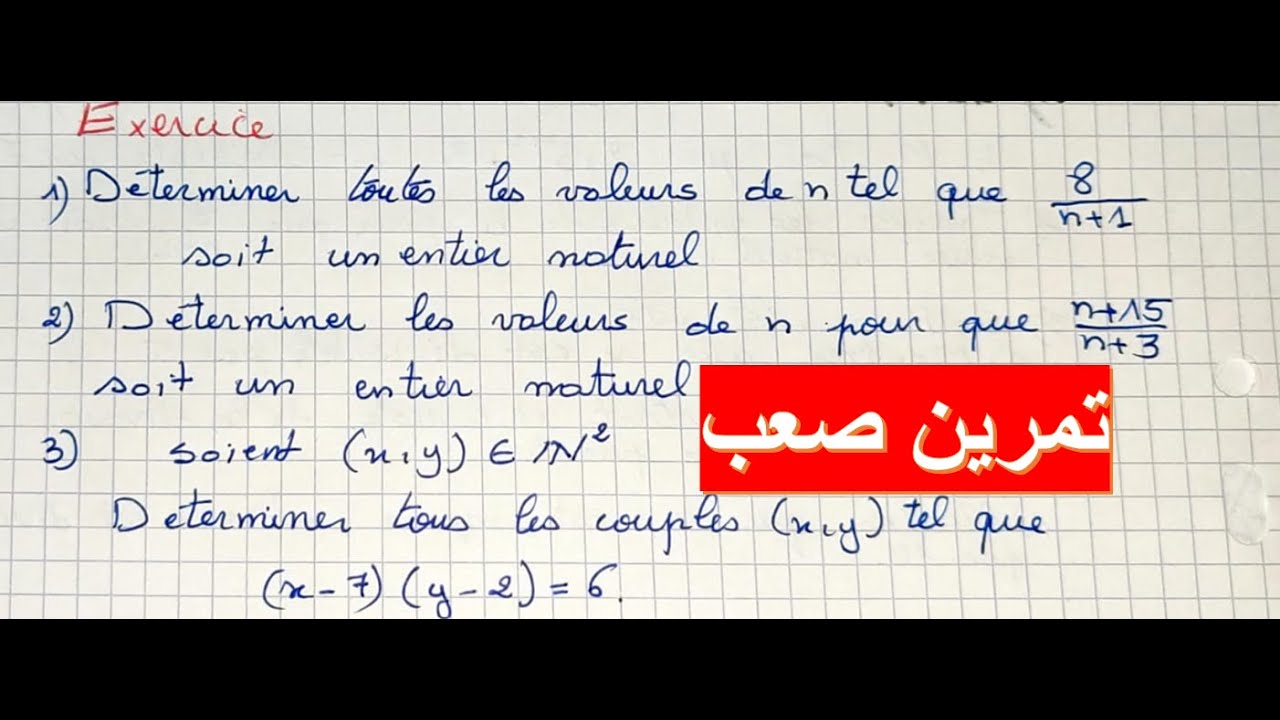 Exercice
1) Déterminer toutes les valeurs de n tel que 8/(n+1)
soit un entier naturel
2) Déterminer les valeurs de n pour que (n+15)/(n+3)
soit un entier naturel
تمرين صعب
3) soient (x,y) ∈ IN²
Determiner tous les couples (x,y) tel que
(x-7)(y-2)=6.